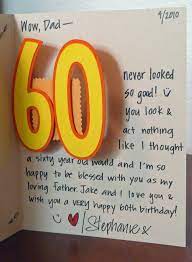 4/2010
Wow, Dad—
60
never looked
so good!
you look &
act nothing
like I thought
a sixty year old would and I'm so
happy to be blessed with you as my
loving father. Jake and I love you &
wish you a very happy 60th birthday!
Stephanie x